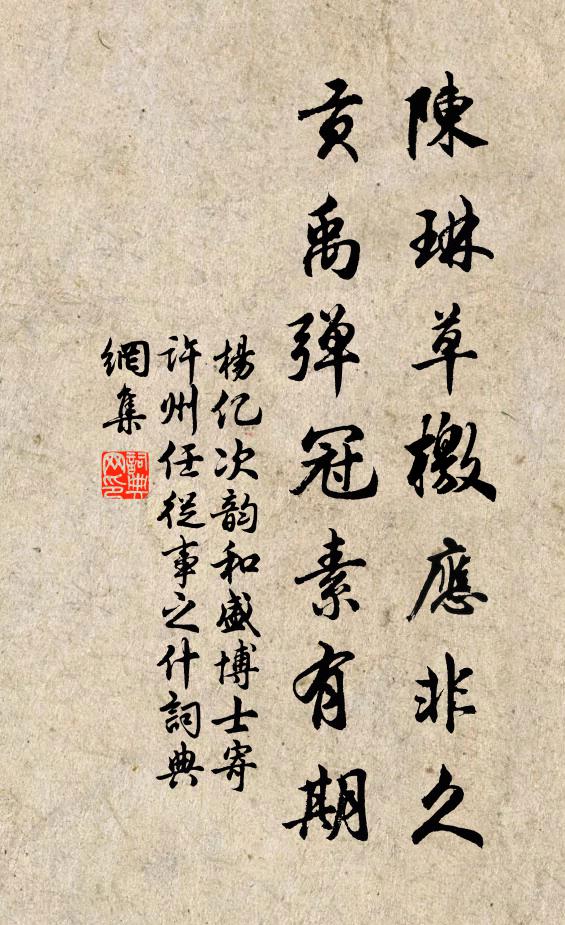 陳琳草檄應非久
貢禹弹冠素有期
楊亿次韵和盛博士寄
許州任從事之什詞典
網集
詞典
网印